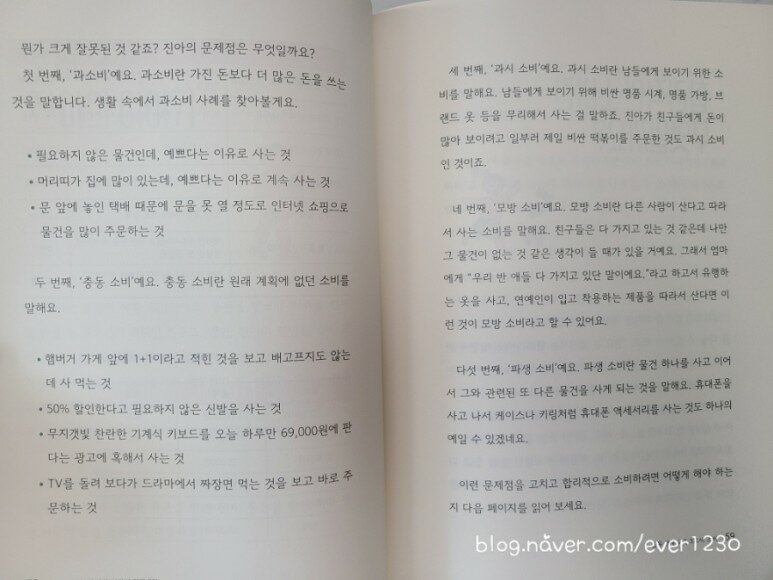 뭔가 크게 잘못된 것 같죠? 진아의 문제점은 무엇일까요?
첫 번째, '과소비'예요. 과소비란 가진 돈보다 더 많은 돈을 쓰는
것을 말합니다. 생활 속에서 과소비 사례를 찾아볼게요.
• 필요하지 않은 물건인데, 예쁘다는 이유로 사는 것
• 머리띠가 집에 많이 있는데, 예쁘다는 이유로 계속 사는 것
• 문 앞에 놓인 택배 때문에 문을 못 열 정도로 인터넷 쇼핑으로
물건을 많이 주문하는 것
두 번째, '충동 소비'예요. 충동 소비란 원래 계획에 없던 소비를
말해요.
• 햄버거 가게 앞에 1+1이라고 적힌 것을 보고 배고프지도 않는
데 사 먹는 것
• 50% 할인한다고 필요하지 않은 신발을 사는 것
• 무지갯빛 찬란한 기계식 키보드를 오늘 하루만 69,000원에 판
다는 광고에 혹해서 사는 것
• TV를 돌려 보다가 드라마에서 짜장면 먹는 것을 보고 바로 주
문하는 것
세 번째, '과시 소비'예요. 과시 소비란 남들에게 보이기 위한 소
비를 말해요. 남들에게 보이기 위해 비싼 명품 시계, 명품 가방, 브
랜드 옷 등을 무리해서 사는 걸 말하죠. 진아가 친구들에게 돈이
많아 보이려고 일부러 제일 비싼 떡볶이를 주문한 것도 과시 소비
인 것이죠.
네 번째, '모방 소비'예요. 모방 소비란 다른 사람이 산다고 따라
서 사는 소비를 말해요. 친구들은 다 가지고 있는 것 같은데 나만
그 물건이 없는 것 같은 생각이 들 때가 있을 거예요. 그래서 엄마
에게 "우리 반 애들 다 가지고 있단 말이에요."라고 하고서 유행하
는 옷을 사고, 연예인이 입고 착용하는 제품을 따라서 산다면 이
런 것이 모방 소비라고 할 수 있어요.
다섯 번째, '파생 소비'예요. 파생 소비란 물건 하나를 사고 이어
서 그와 관련된 또 다른 물건을 사게 되는 것을 말해요. 휴대폰을
사고 나서 케이스나 키링처럼 휴대폰 액세서리를 사는 것도 하나의
예일 수 있겠네요.
이런 문제점을 고치고 합리적으로 소비하려면 어떻게 해야 하는
지 다음 페이지를 읽어 보세요.
blog.naver.com/ever1230